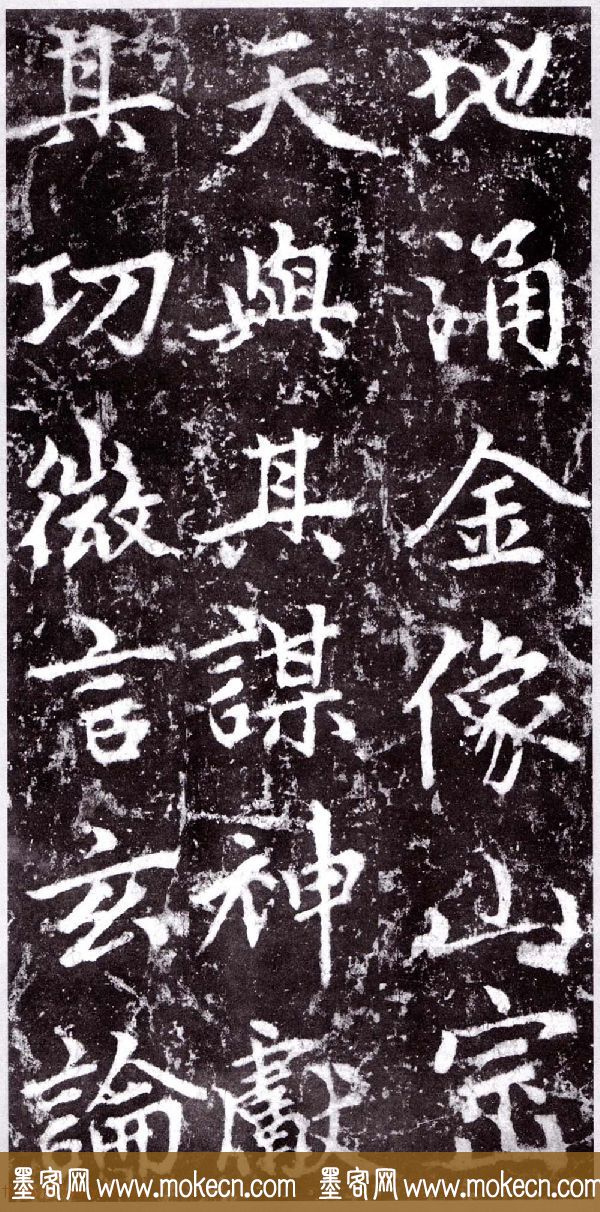 地涌金像山宗
天與其謀神獻
其切微言玄論
墨客网 www.mokecn.com 墨客网 www.mokecn.com